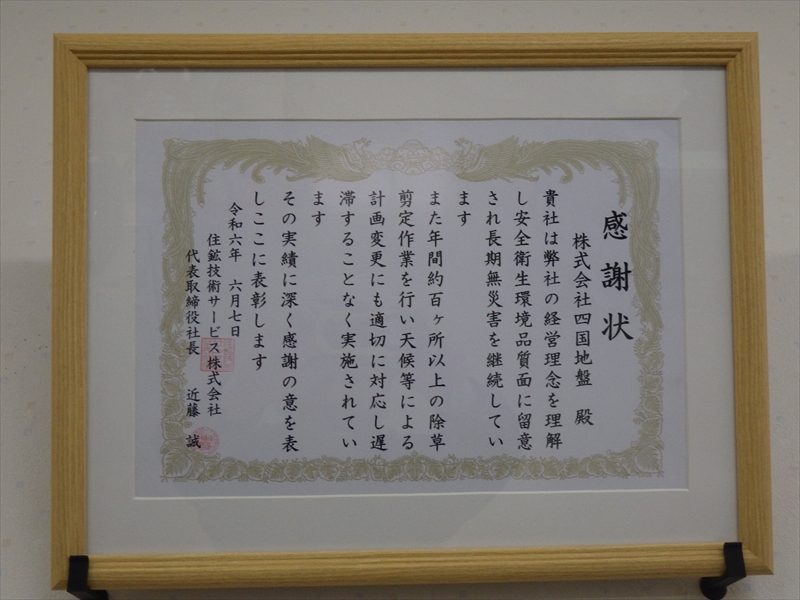 感謝状
株式会社四国地盤 殿
貴社は弊社の経営理念を理解
し安全衛生環境品質面に留意
され長期無災害を継続してい
ます
また年間約百ヶ所以上の除草
剪定作業を行い天候等による
計画変更にも適切に対応し遅
滞することなく実施されてい
ます
その実績に深く感謝の意を表
しここに表彰します
令和六年 六月七日
住鉱技術サービス株式会社
代表取締役社長 近藤 誠